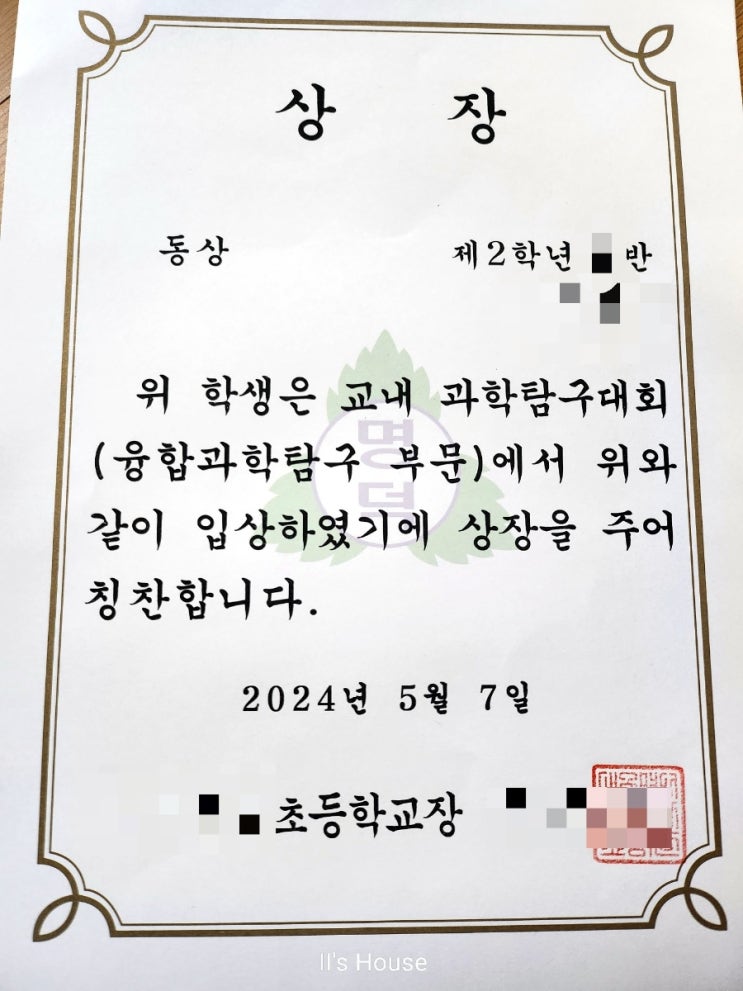 상 장
동상 제2학년 반
위 학생은 교내 과학탐구대회
(융합과학탐구 부문)에서 위와
같이 입상하였기에 상장을 주어
칭찬합니다.
명덕
2024년 5월 7일
초등학교장
II's House